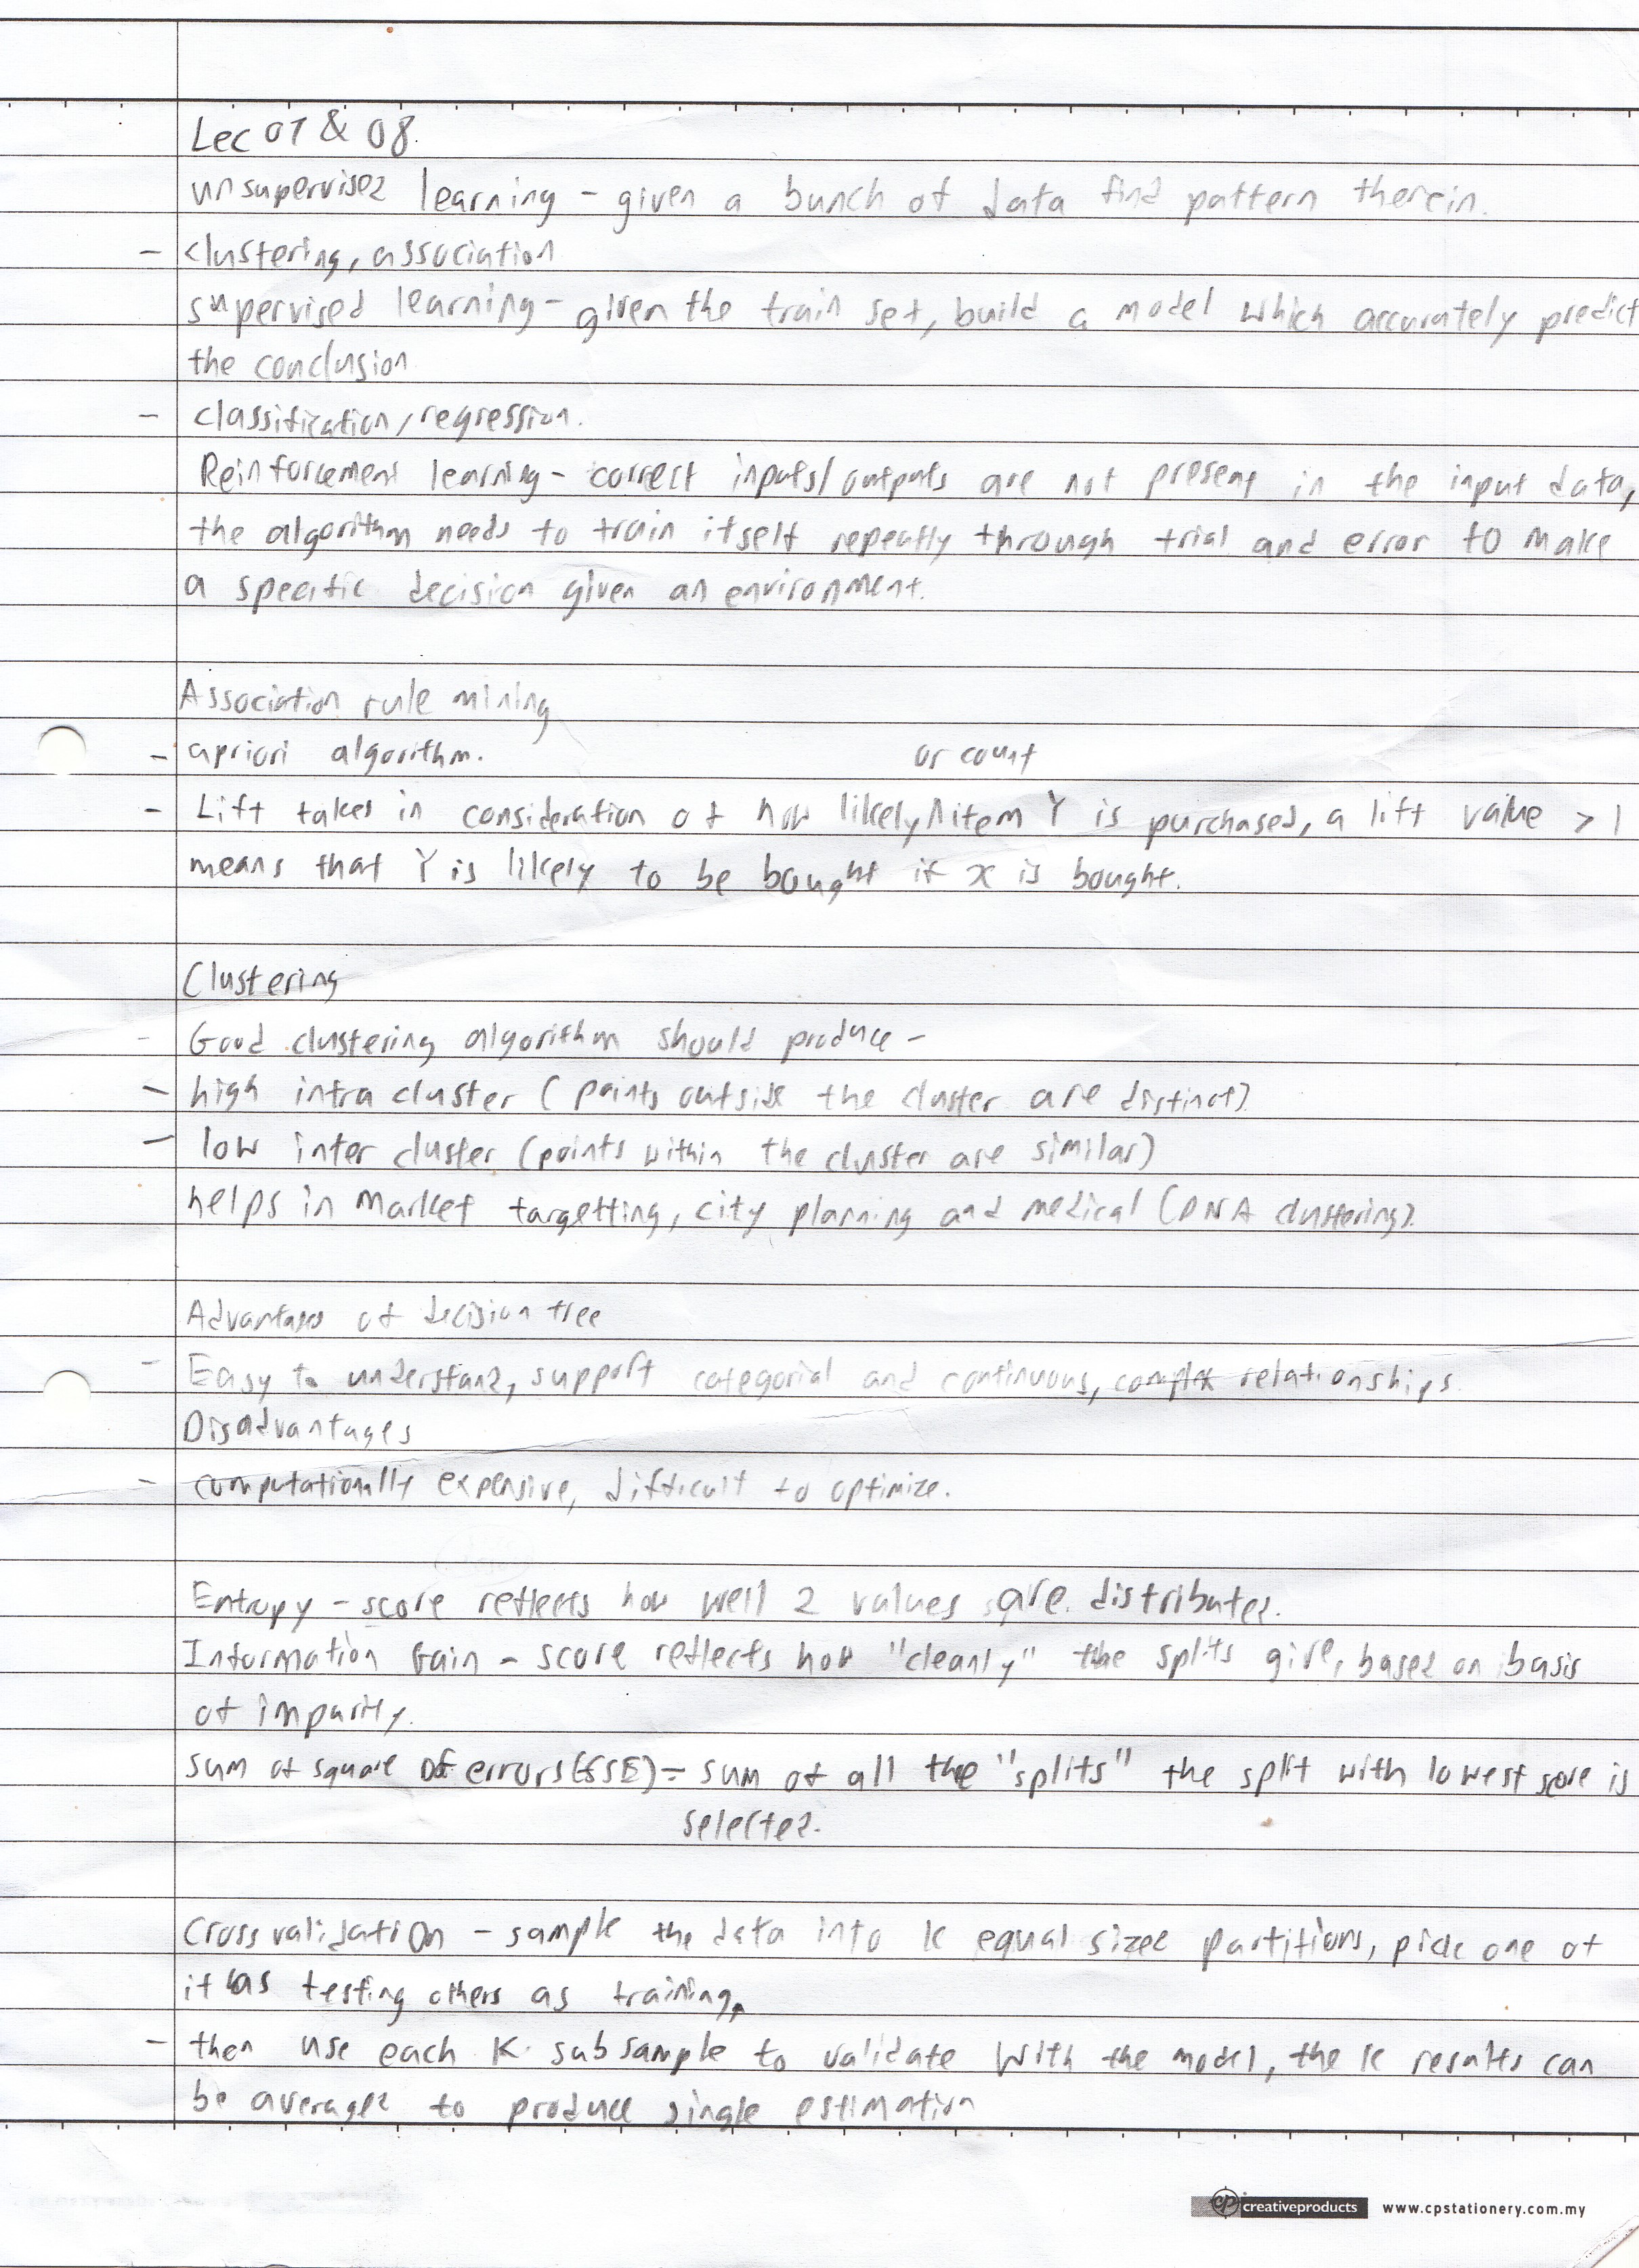 Lec 07 & 08.
unsupervised learning - given a bunch of data find pattern therein.
- clustering, association
supervised learning - given the train set, build a model which accurately predict
the conclusion
- classification/regression.
Reinforcement learning - correct inputs/outputs are not present in the input data,
the algorithm needs to train itself repeatly through trial and error to make
a specific decision given an environment.
Association rule mining
- apriori algorithm.
or count
- Lift takes in consideration of how likely item Y is purchased, a lift value > 1
means that Y is likely to be bought if x is bought.
Clustering
- Good clustering algorithm should produce -
- high intra cluster (points outside the cluster are distinct)
- low inter cluster (points within the cluster are similar)
helps in market targetting, city planning and medical (DNA clustering).
Advantages of decision tree
- Easy to understand, support categorial and continuous, complex relationships
Disadvantages
- computationally expensive, difficult to optimize.
Entropy - score reflects how well 2 values are distributed.
Information Gain - score reflects how "cleanly" the splits give, based on basis
of impurity.
sum of square of errors (SSE) - sum of all the "splits" the split with lowest score is
selected.
Cross validation - sample the data into k equal sized partitions, pick one of
it as testing others as training,
- then use each K subsample to validate with the model, the k results can
be averaged to produce single estimation
cp creativeproducts www.cpstationery.com.my